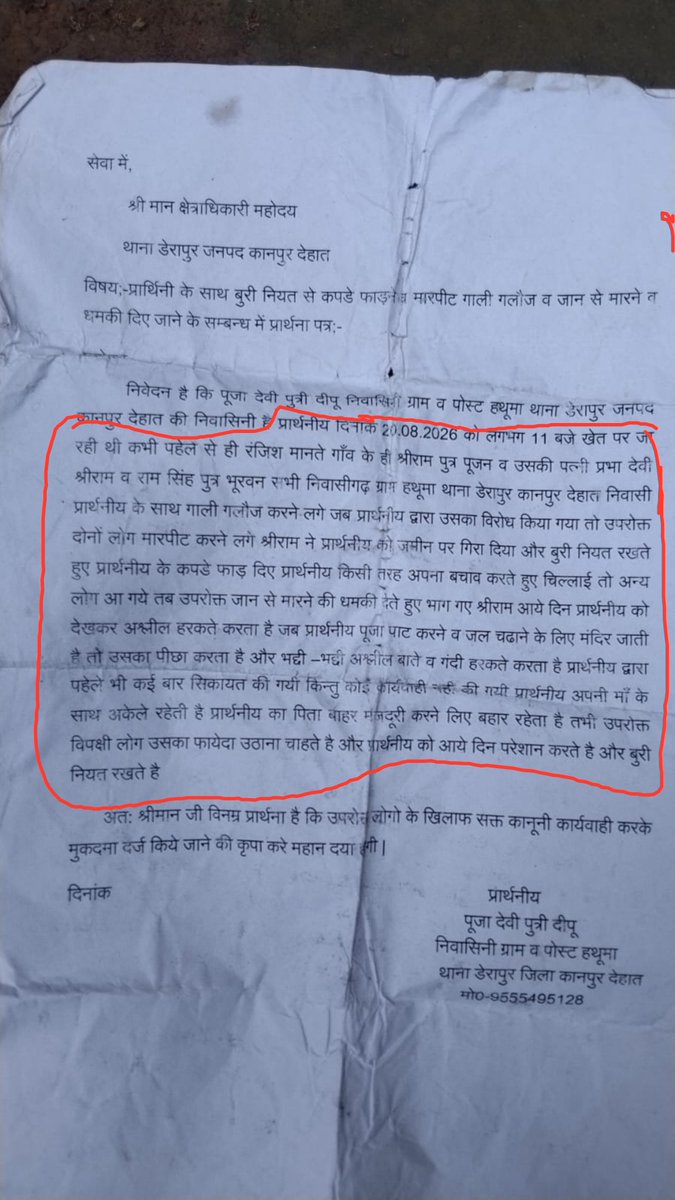 सेवा में,
श्री मान क्षेत्राधिकारी महोदय
थाना डेरापुर जनपद कानपुर देहात
विषय:-प्रार्थिनी के साथ बुरी नियत से कपडे फाड़ने व मारपीट गाली गलौज व जान से मारने व
धमकी दिए जाने के सम्बन्ध में प्रार्थना पत्र:-
निवेदन है कि पूजा देवी पुत्री दीपू निवासिनी ग्राम व पोस्ट हथूमा थाना डेरापुर जनपद
कानपुर देहात की निवासिनी है प्रार्थनीय दिनांक 20.08.2026 को लगभग 11 बजे खेत पर जा
रही थी कभी पहेले से ही रंजिश मानते गाँव के ही श्रीराम पुत्र पूजन व उसकी पत्नी प्रभा देवी
श्रीराम व राम सिंह पुत्र भूरवन सभी निवासीगढ़ ग्राम हथूमा थाना डेरापुर कानपुर देहात निवासी
प्रार्थनीय के साथ गाली गलौज करने लगे जब प्रार्थनीय द्वारा उसका विरोध किया गया तो उपरोक्त
दोनों लोग मारपीट करने लगे श्रीराम ने प्रार्थनीय को जमीन पर गिरा दिया और बुरी नियत रखते
हुए प्रार्थनीय के कपडे फाड़ दिए प्रार्थनीय किसी तरह अपना बचाव करते हुए चिल्लाई तो अन्य
लोग आ गये तब उपरोक्त जान से मारने की धमकी देते हुए भाग गए श्रीराम आये दिन प्रार्थनीय को
देखकर अश्लील हरकते करता है जब प्रार्थनीय पूजा पाट करने व जल चढाने के लिए मंदिर जाती
है तो उसका पीछा करता है और भद्दी –भद्दी अश्लील बाते व गंदी हरकते करता है प्रार्थनीय द्वारा
पहेले भी कई बार सिकायत की गयी किन्तु कोई कार्यवाही नही की गयी प्रार्थनीय अपनी माँ के
साथ अकेले रहेती है प्रार्थनीय का पिता बाहर मजदूरी करने लिए बहार रहेता है तभी उपरोक्त
विपक्षी लोग उसका फायेदा उठाना चाहते है और प्रार्थनीय को आये दिन परेशान करते है और बुरी
नियत रखते है
अत: श्रीमान जी विनम्र प्रार्थना है कि उपरोक्त लोगो के खिलाफ सक्त कानूनी कार्यवाही करके
मुकदमा दर्ज किये जाने की कृपा करे महान दया होगी |
दिनांक
प्रार्थनीय
पूजा देवी पुत्री दीपू
निवासिनी ग्राम व पोस्ट हथूमा
थाना डेरापुर जिला कानपुर देहात
मो0-9555495128